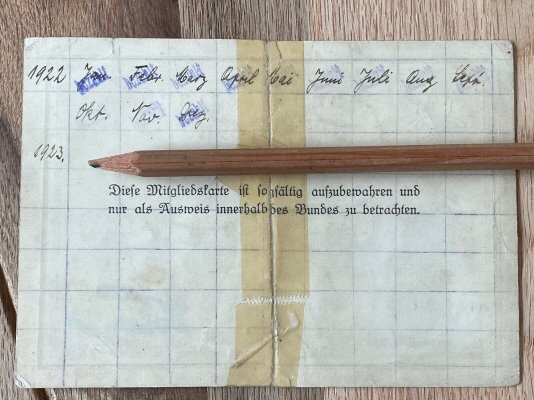 1922 Jan. Febr. März April Mai Juni Juli Aug Sept.
Okt. Nov. Dez.
1923.
Diese Mitgliedskarte ist sorgfältig aufzubewahren und
nur als Ausweis innerhalb des Bundes zu betrachten.